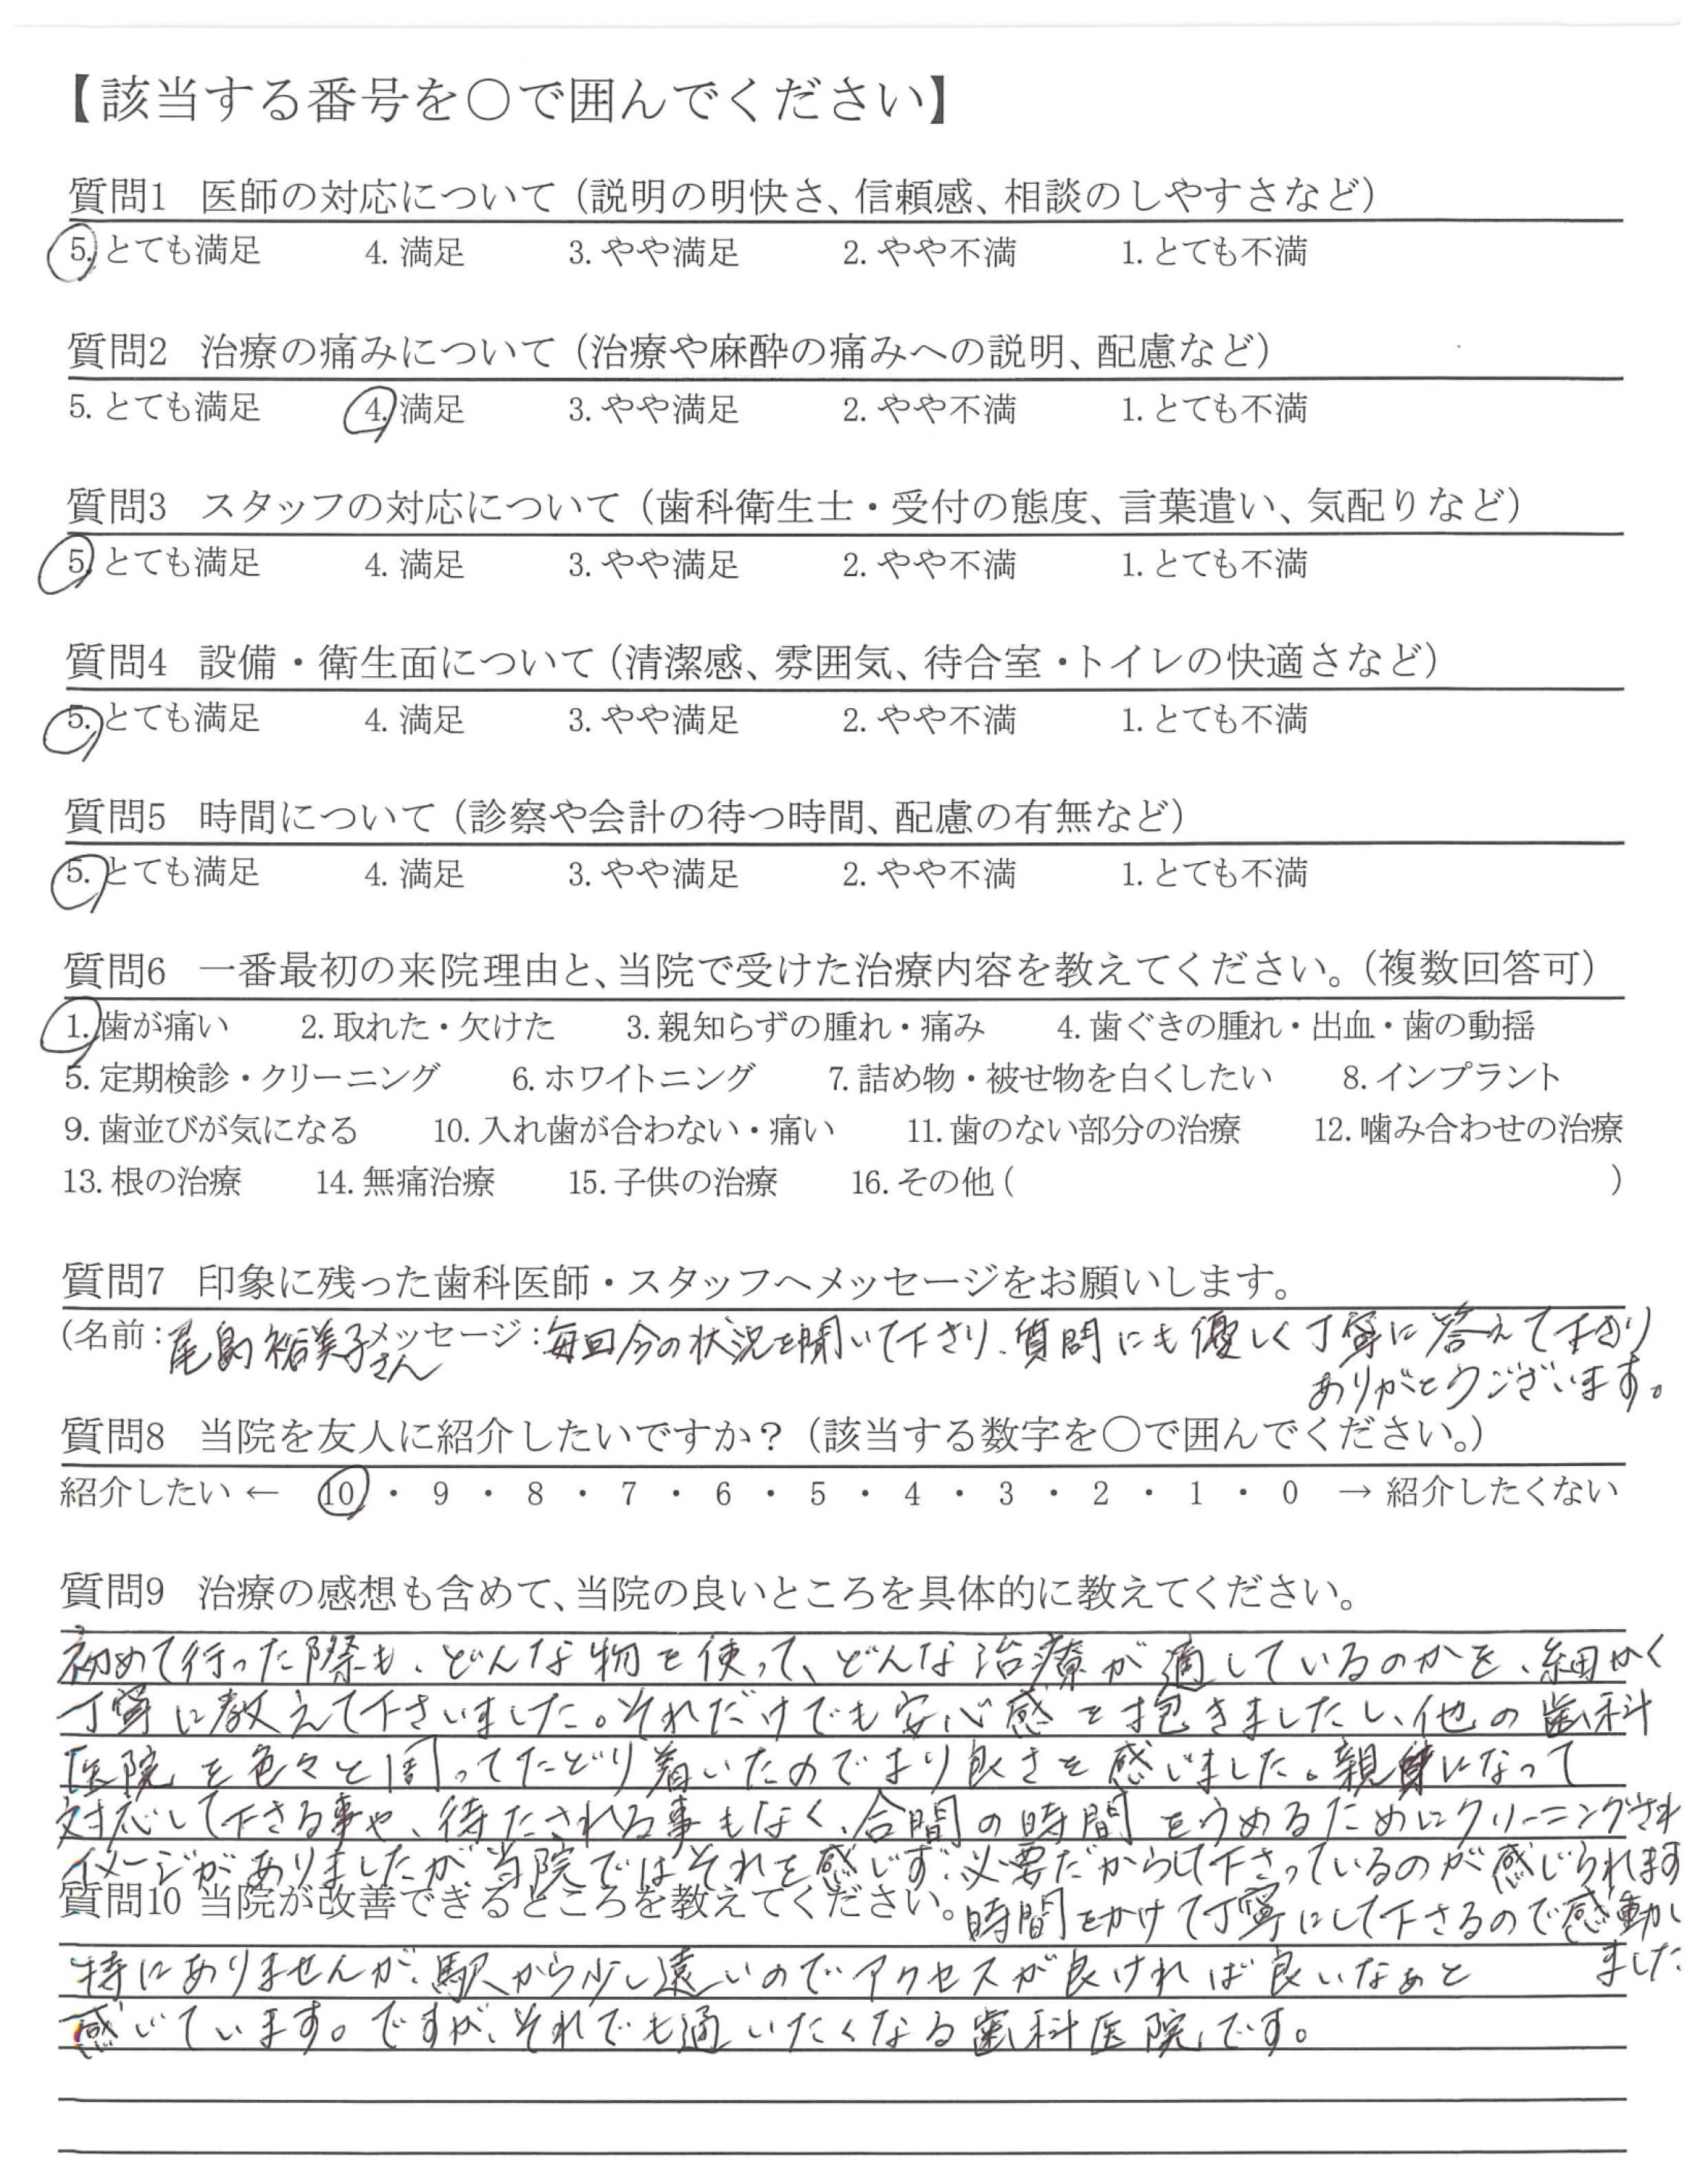 【該当する番号を○で囲んでください】
質問1 医師の対応について（説明の明快さ、信頼感、相談のしやすさなど）
5. とても満足 4. 満足 3. やや満足 2. やや不満 1. とても不満
質問2 治療の痛みについて（治療や麻酔の痛みへの説明、配慮など）
5. とても満足 4. 満足 3. やや満足 2. やや不満 1. とても不満
質問3 スタッフの対応について（歯科衛生士・受付の態度、言葉遣い、気配りなど）
5. とても満足 4. 満足 3. やや満足 2. やや不満 1. とても不満
質問4 設備・衛生面について（清潔感、雰囲気、待合室・トイレの快適さなど）
5. とても満足 4. 満足 3. やや満足 2. やや不満 1. とても不満
質問5 時間について（診察や会計の待つ時間、配慮の有無など）
5. とても満足 4. 満足 3. やや満足 2. やや不満 1. とても不満
質問6 一番最初の来院理由と、当院で受けた治療内容を教えてください。（複数回答可）
1. 歯が痛い 2. 取れた・欠けた 3. 親知らずの腫れ・痛み 4. 歯ぐきの腫れ・出血・歯の動揺
5. 定期検診・クリーニング 6. ホワイトニング 7. 詰め物・被せ物を白くしたい 8. インプラント
9. 歯並びが気になる 10. 入れ歯が合わない・痛い 11. 歯のない部分の治療 12. 噛み合わせの治療
13. 根の治療 14. 無痛治療 15. 子供の治療 16. その他（ ）
質問7 印象に残った歯科医師・スタッフへメッセージをお願いします。
（名前：尾島裕美子さん メッセージ：毎回今の状況を聞いて下さり、質問にも優しく丁寧に答えて下さり
ありがとうございます。
質問8 当院を友人に紹介したいですか？（該当する数字を○で囲んでください。）
紹介したい ← 10 ・ 9 ・ 8 ・ 7 ・ 6 ・ 5 ・ 4 ・ 3 ・ 2 ・ 1 ・ 0 → 紹介したくない
質問9 治療の感想も含めて、当院の良いところを具体的に教えてください。
初めて行った際も、どんな物を使って、どんな治療が適しているのかを、細かく
丁寧に教えて下さいました。それだけでも安心感を抱きましたし、他の歯科
医院を色々と周ってたどり着いたのでより良さを感じました。親身になって
対応して下さる事や、待たされる事もなく、合間の時間をうめるためにクリーニングされ
イメージがありましたが当院ではそれを感じず、必要だからして下さっているのが感じられます
時間をかけて丁寧にして下さるので感動し
ました
質問10 当院が改善できるところを教えてください。
特にありませんが、駅から少し遠いのでアクセスが良ければ良いなぁと
感じています。ですが、それでも通いたくなる歯科医院です。